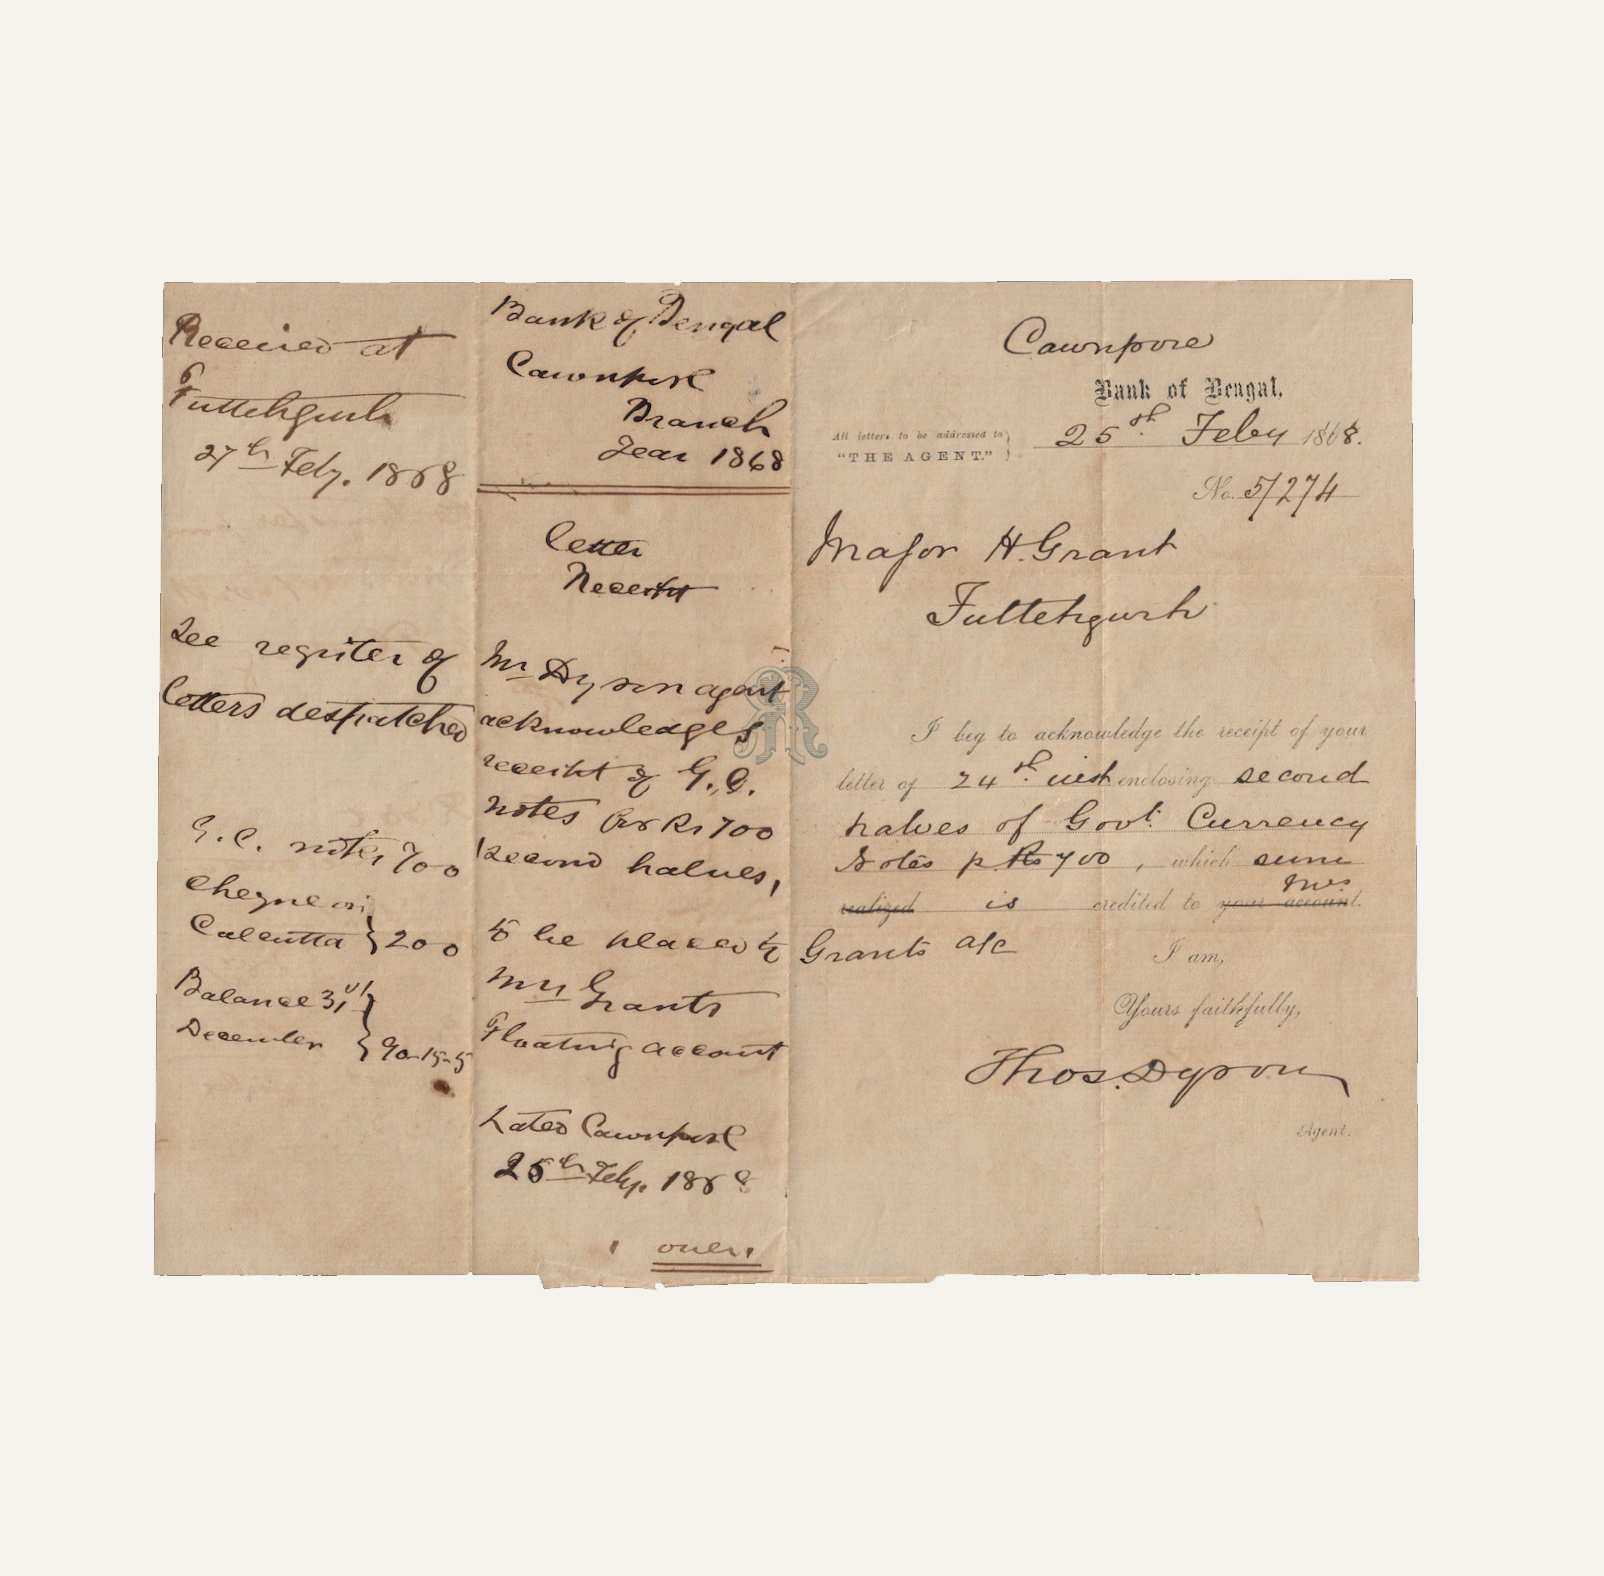 Received at
Futtehgurh
27th Feby. 1868
See register of
letters despatched
G.C. notes 700
Cheque on
Calcutta } 200
Balance 31st
December } 90-15-5
Bank of Bengal
Cawnpore
Branch
Year 1868
Letter
Receipt
Mr Dyson agent
acknowledges
receipt of G.C.
notes for Rs 700
second halves,
to be placed to
Mrs Grants
Floating account
Dated Cawnpore
25th Feby. 1868
over,
Cawnpore
Bank of Bengal,
25th Feby 1868.
All letters to be addressed to
"THE AGENT."
No. 5/274
Major H. Grant
Futtehgurh
I beg to acknowledge the receipt of your
letter of 24th inst enclosing second
halves of Govt. Currency
Notes p Rs 700, which sum
Mrs
realized is credited to your account.
Grants a/c
I am,
Yours faithfully,
Thos. Dyson
Agent.